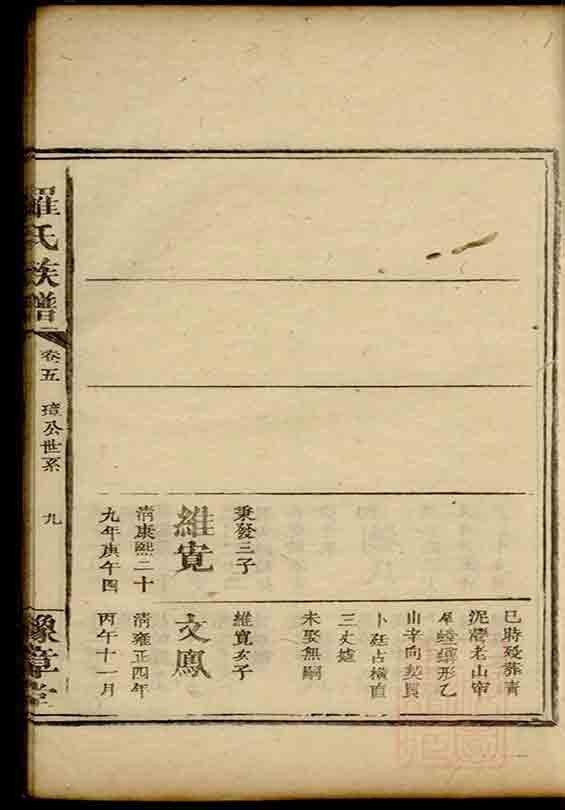 秉發三子
維寬
清康熙二十
九年庚午四
巳時歿葬青
泥灣老山
螳螂形乙
山辛向契買
卜廷占橫直
三丈墟
未娶無嗣
維寬子
文鳳
清雍正四年
丙午十一月
羅氏族譜
卷五 璋公世系 九
豫章堂